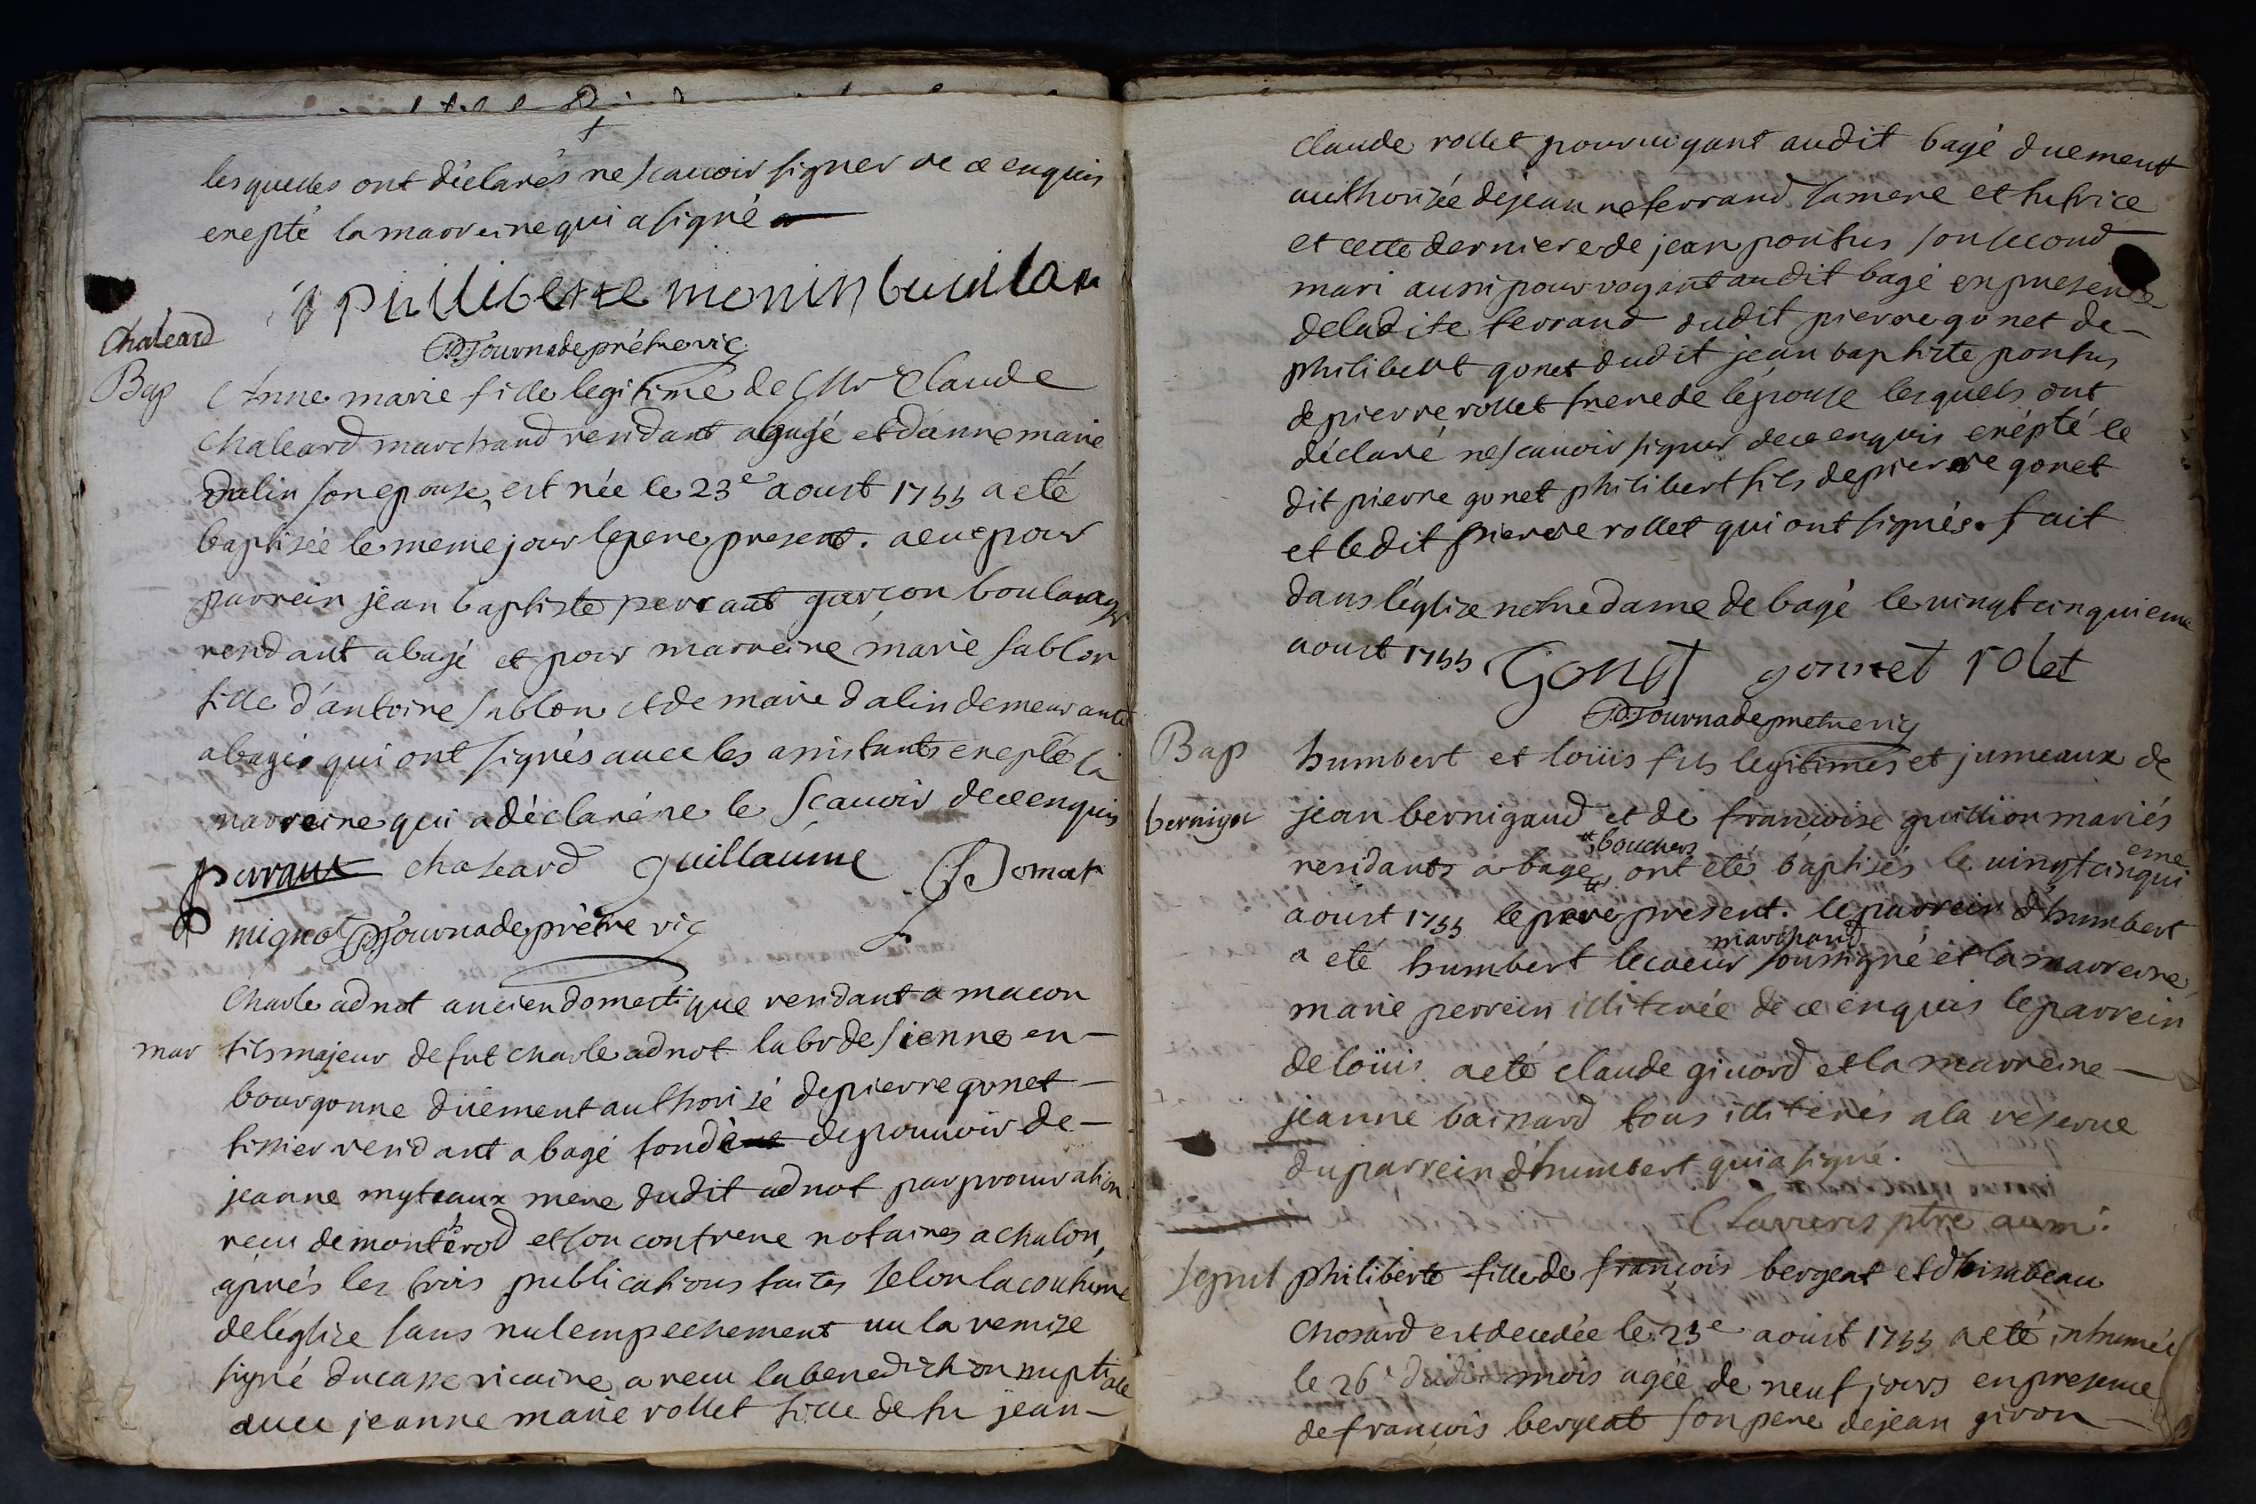 lesquelles ont déclarés ne scauoir signer de ce enquis
exepté la marreine qui a signé
philiberte monin buiilla
Tournade prétre vic
Chaleard
Bap
Anne marie fille legitime de Mr Claude
Chaleard marchand residant a bagé et d'anne marie
dalin son epouse, est née le 23e aoust 1755 a eté
baptisée le meme jour le pere present. a eue pour
parrein jean baptiste perraut garçon boulanger
residant a bagé et pour marreine marie sablon
fille d'antoine sablon et de marie dalin demeurante
a bagé qui ont signés auec les assistants exepté la
marreine qui a déclaré ne le sçauoir de ce enquis
perraut chaleard guillaume Domat
mignot Tournade prétre vic
mar
Charle adnot ancien domestique residant a macon
fils majeur de fut charle adnot labr de sienne en
bourgonne düement authorisé de pierre gonet
tissier residant a bagé fondé de pouuoir de
jeanne myteaux mere dudit adnot par procuration
recu de monterod et son confrere notaires a chalon,
aprés les trois publications faites selon la coutume
de l'eglise sans nul empechement uu la remise
signé ducasse vicaire a recu la benediction nuptiale
auec jeanne marie rollet fille de fu jean
claude rollet pouruoyant audit bagé duement
authorisée de jeanne ferrand sa mere et tutrice
et cette derniere de jean pontus son second
mari aussi pourvoyant audit bagé en presence
de ladite ferrand dudit pierre gonet de
philibert gonet dudit jean baptiste pontus
de pierre rollet frere de l'epouse lesquels ont
déclaré ne scauoir signer de ce enquis exépté le
dit pierre gonet philibert fils de pierre gonet
et ledit pierre rollet qui ont signés. fait
dans l'église notre dame de bagé le uingt cinquieme
aoust 1755 Gonet gonnet rolet
Tournade pretre vic
Bap
bernigos
humbert et loüis fils legitimes et jumeaux de
jean bernigaud et de françoise guillion mariés
residants a bagé bouchers ont etés baptisés le uingt cinquieme
aoust 1755 le pere present. le parrein d'humbert
a eté humbert lecoeur marchand soussigné et la marreine
marie perrein illiterée de ce enquis le parrein
de loüis a eté claude giuord et la marreine
jeanne baissard tous illiterés a la reserue
du parrein d'humbert qui a signé.
ptre aum.
sepul
philiberte fille de françois bergeat et d'hisabeau
Chosard est decedée le 25e aoust 1755 a eté inhumée
le 26e dudit mois agée de neuf jours en presence
de françois bergeat son pere de jean giron